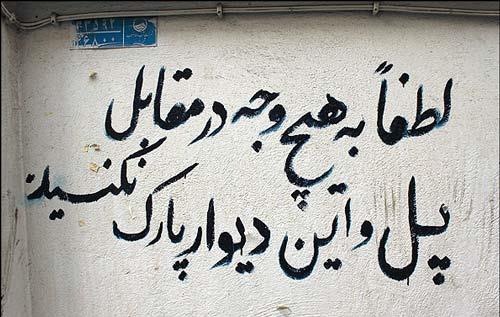 لطفاً به هیچ وجه در مقابل
پل و این دیوار پارک نکنید